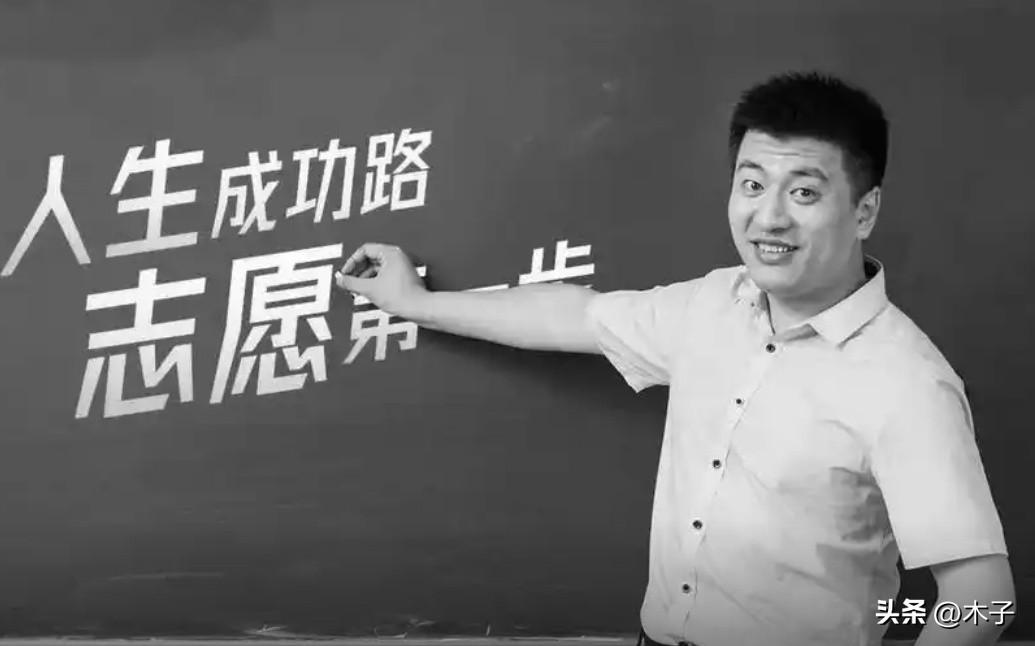 人生成功路
志愿第一步
头条 @木子